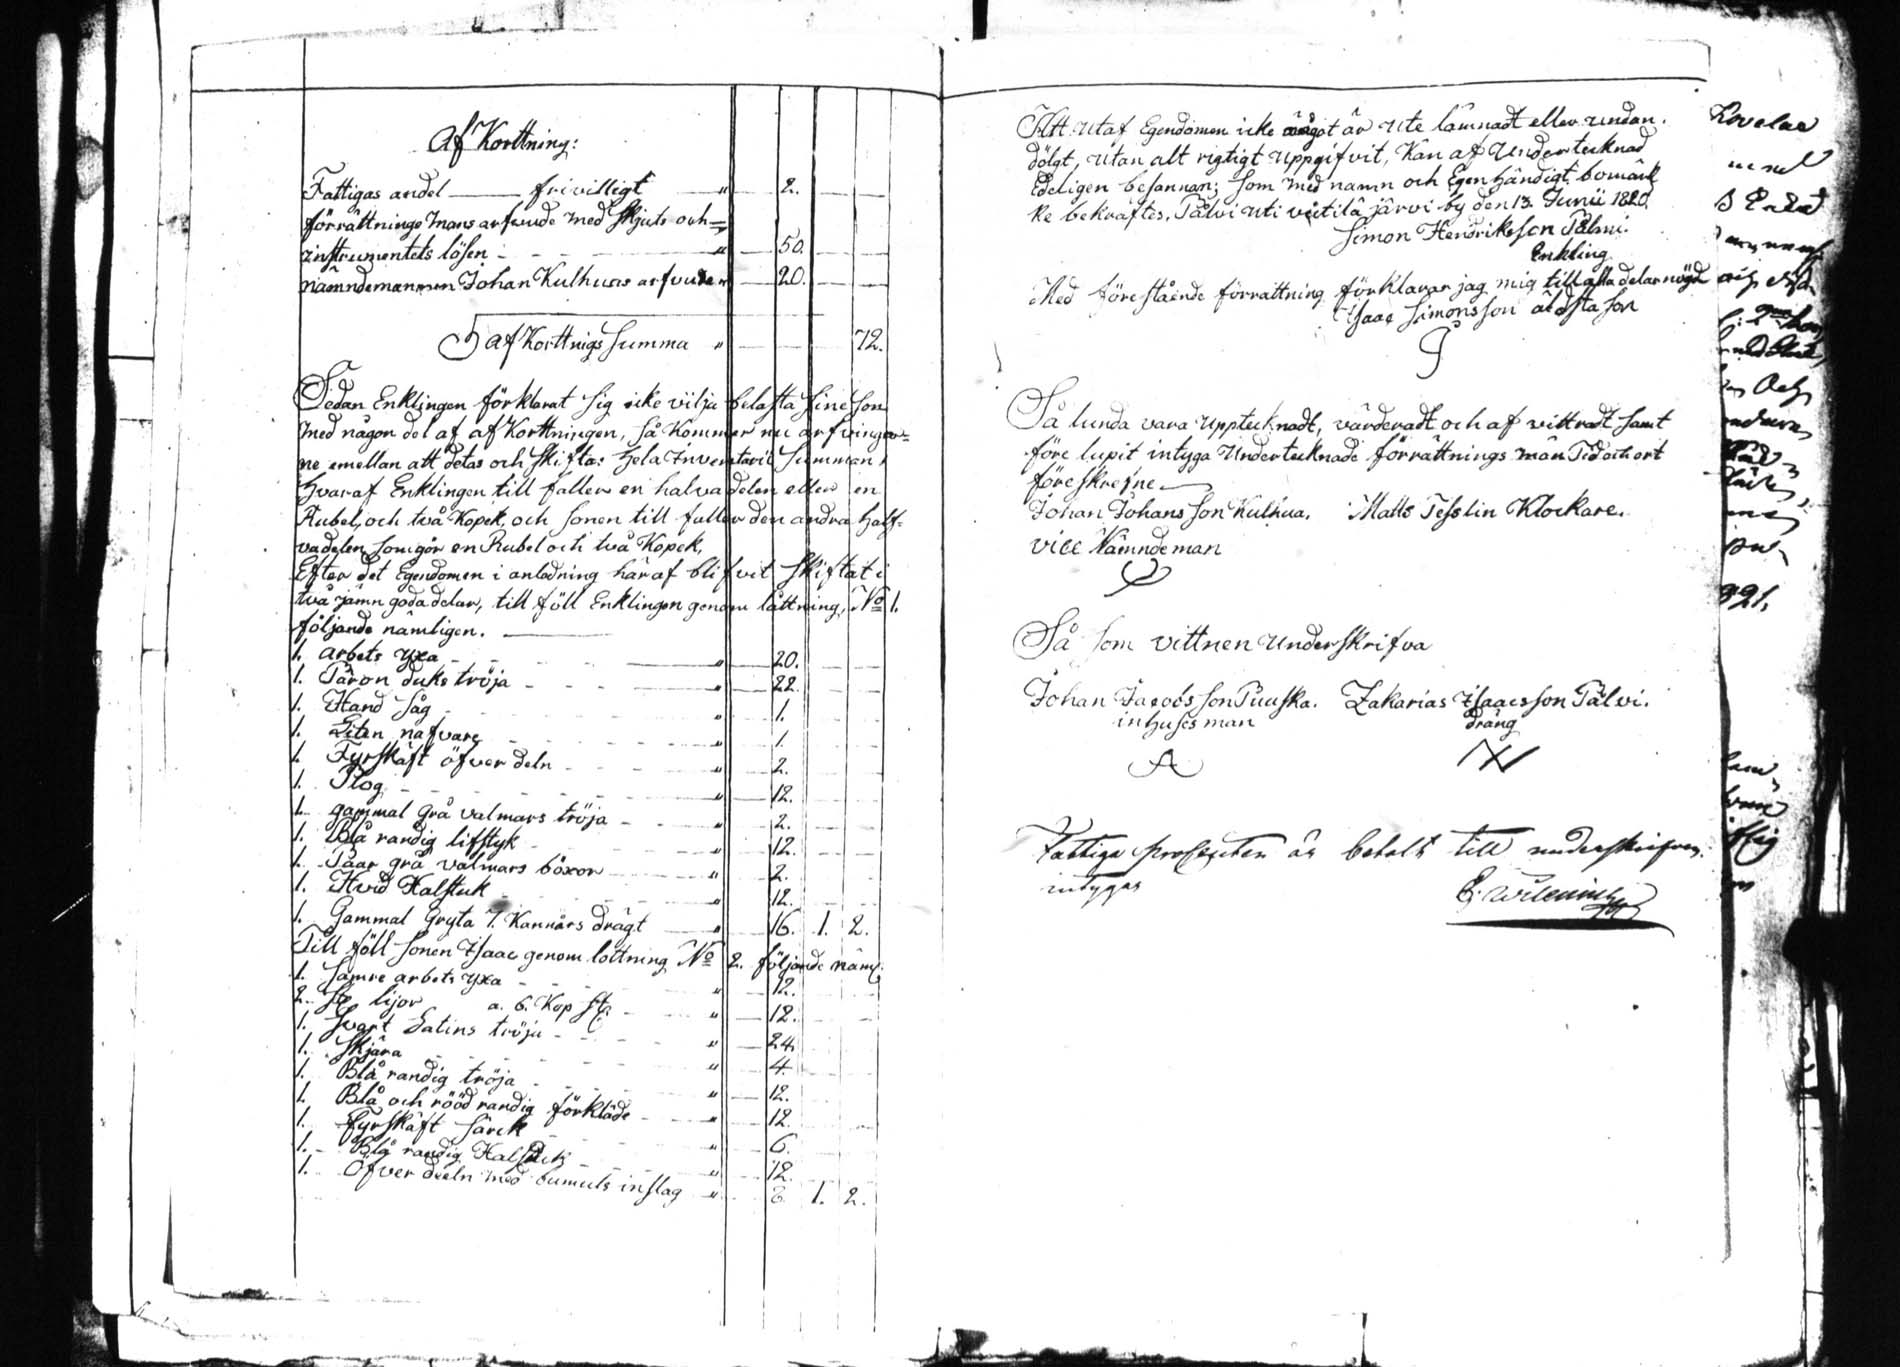 Af Korttning:
Fattigas andel frivilligt " 2.
förrättnings mans arfvude med Skjuts och
instrumentets lösen " 50.
nämndemannen Johan Kulhuas arfvude " 20.
af Korttnigs Summa " 72.
Sedan Enklingen förklarat sig icke vilja belasta sine son
med någon del af af Korttningen, så Kommer nu arfvingar=
ne emellan att delas och skiftas hela Inventarii Summan,
hvaraf Enklingen till faller en halva delen eller en
Rubel, och två Kopek, och sonen till faller den andra half=
vadelen som gör en Rubel och två Kopek,
Efter det Egendomen i anledning häraf blifvit Skiftat i
två jämn goda delar, till föll Enklingen genom låttning, No 1.
följande nämligen.
1. arbets yxa " 20.
1. Paron duks tröja " 22.
1. Hand såg " 1.
1. Liten nafvare " 1.
1. Fyrskäft öfver deln " 2.
1. Plog " 12.
1. gammal grå valmars tröja " 2.
1. Blå randig lifstyk " 12.
1. Paar grå valmars böxor " 2.
1. Hvid Halstuk " 12.
1. Gammal Gryta 7. Kannars drägt " 16. 1. 2.
Till föll sonen Isaac genom lottning No 2. följande näml.
1. sämre arbets yxa " 12.
2. St. lijor a. 6. Kop St. " 12.
1. Svart Satins tröja " 24.
1. Skjära " 4.
1. Blå randig tröja " 12.
1. Blå och rööd randig förkläde " 12.
1. Fyrskäft särck " 6.
1. Blå randig Halsduk " 12.
1. Öfver deeln med bumuls inslag " 8. 1. 2.
Att utaf Egendomen icke något är ute lämnadt eller undan.
dölgt, utan alt rigtigt uppgifvit, Kan af Undertecknad
Edeligen besannan; som med namn och Egen händigt bomärk
ke bekräftes, Pälvi uti viitilä järvi by den 13. Junii 1820.
Simon Hendriksson Pälvi.
Enkling
Med före stående förrättning förklarar jag mig till alla delar nögd
Isaac Simonsson äldsta son
Så lunda vara upptecknadt, värderadt och af vittradt samt
före lupit intyga Undertecknade förrättnings män Tid och ort
föreskrefne.
Johan Johansson Kulhua. Matts Tesslin Klockare.
vice Nämndeman
Så som vittnen underskrifva
Johan Jacobsson Puuska. Zakarias Isaacsson Pälvi.
inhuses man dräng
Fattiga procenten är betalt till underskrifven.
intygas